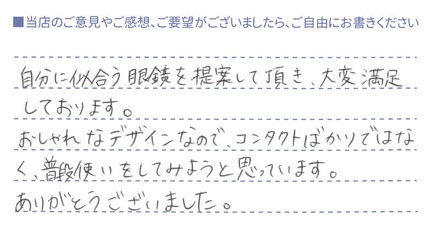 ■当店のご意見やご感想、ご要望がございましたら、ご自由にお書きください
自分に似合う眼鏡を提案して頂き、大変満足
しております。
おしゃれなデザインなので、コンタクトばかりではな
く、普段使いをしてみようと思っています。
ありがとうございました。